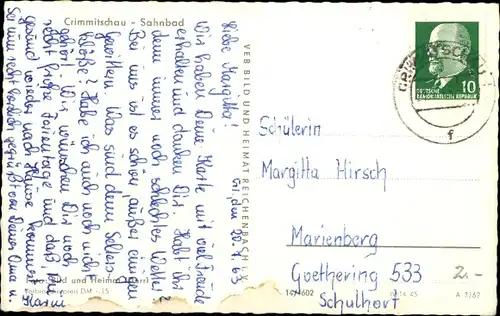 Crimmitschau - Sahnbad
Liebe Margitta!
Wir haben Deine Karte mit viel Freude
erhalten und danken Dir. Habt ihr
denn immer noch schlechtes Wetter?
Bei uns ist es schön, außer einigen
Gewittern. Was sind denn
Klöße? Habe ich auch noch nicht
gehört. Wir wünschen Dir noch
recht frohe Ferientage und daß Du
gesund wieder nach Hause kommst.
Sei nun recht herzlich gegrüßt von Deiner Oma u.
Karin
Cri., den 20.7.63
VEB BILD UND HEIMAT REICHENBACH I. V.
DEUTSCHE
DEMOKRATISCHE REPUBLIK
10
f
Schülerin
Margitta Hirsch
Marienberg
Goethering 533
Schulhort
2.-
Bild und Heimat
DM -,15
A 1/62